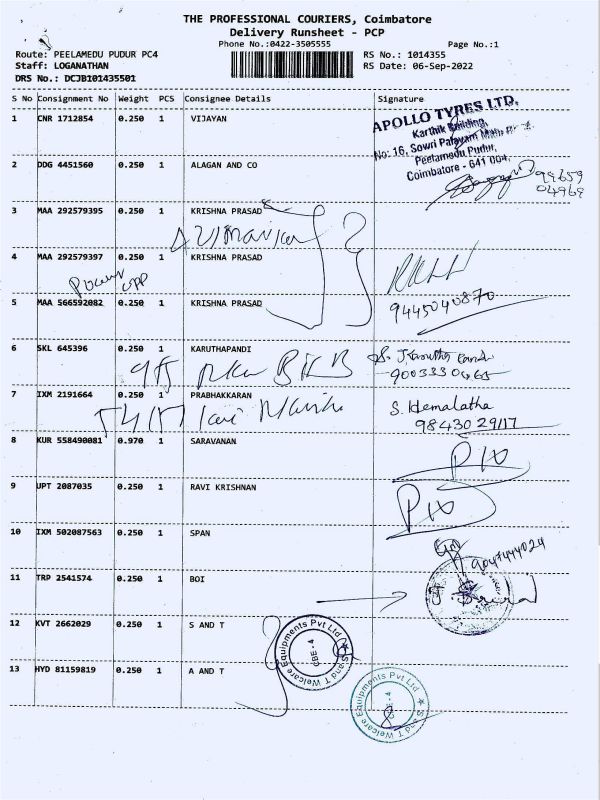 THE PROFESSIONAL COURIERS, Coimbatore
Delivery Runsheet - PCP
Phone No.:0422-3505555 Page No.:1
Route: PEELAMEDU PUDUR PC4 RS No.: 1014355
Staff: LOGANATHAN RS Date: 06-Sep-2022
DRS No.: DCJB101435501
S No Consignment No Weight PCS Consignee Details Signature
1 CNR 1712854 0.250 1 VIJAYAN
APOLLO TYRES LTD.
Karthik Building,
No: 16, Sowri Palayam Main
Peelamedu Pudur,
Coimbatore - 641 004.
2 DDG 4451560 0.250 1 ALAGAN AND CO
99659
04969
3 MAA 292579395 0.250 1 KRISHNA PRASAD
4 MAA 292579397 0.250 1 KRISHNA PRASAD
5 MAA 566592082 0.250 1 KRISHNA PRASAD
9445040870
6 SKL 645396 0.250 1 KARUTHAPANDI
9003330465
7 IXM 2191664 0.250 1 PRABHAKKARAN
S. Hemalatha
98430 29117
8 KUR 558490081 0.970 1 SARAVANAN
9 UPT 2087035 0.250 1 RAVI KRISHNAN
10 IXM 502087563 0.250 1 SPAN
9047444024
11 TRP 2541574 0.250 1 BOI
12 KVT 2662029 0.250 1 S AND T
S and T Welcare Equipments Pvt Ltd
CBE - 4
13 HYD 81159819 0.250 1 A AND T
S and T Welcare Equipments Pvt Ltd
CBE - 4